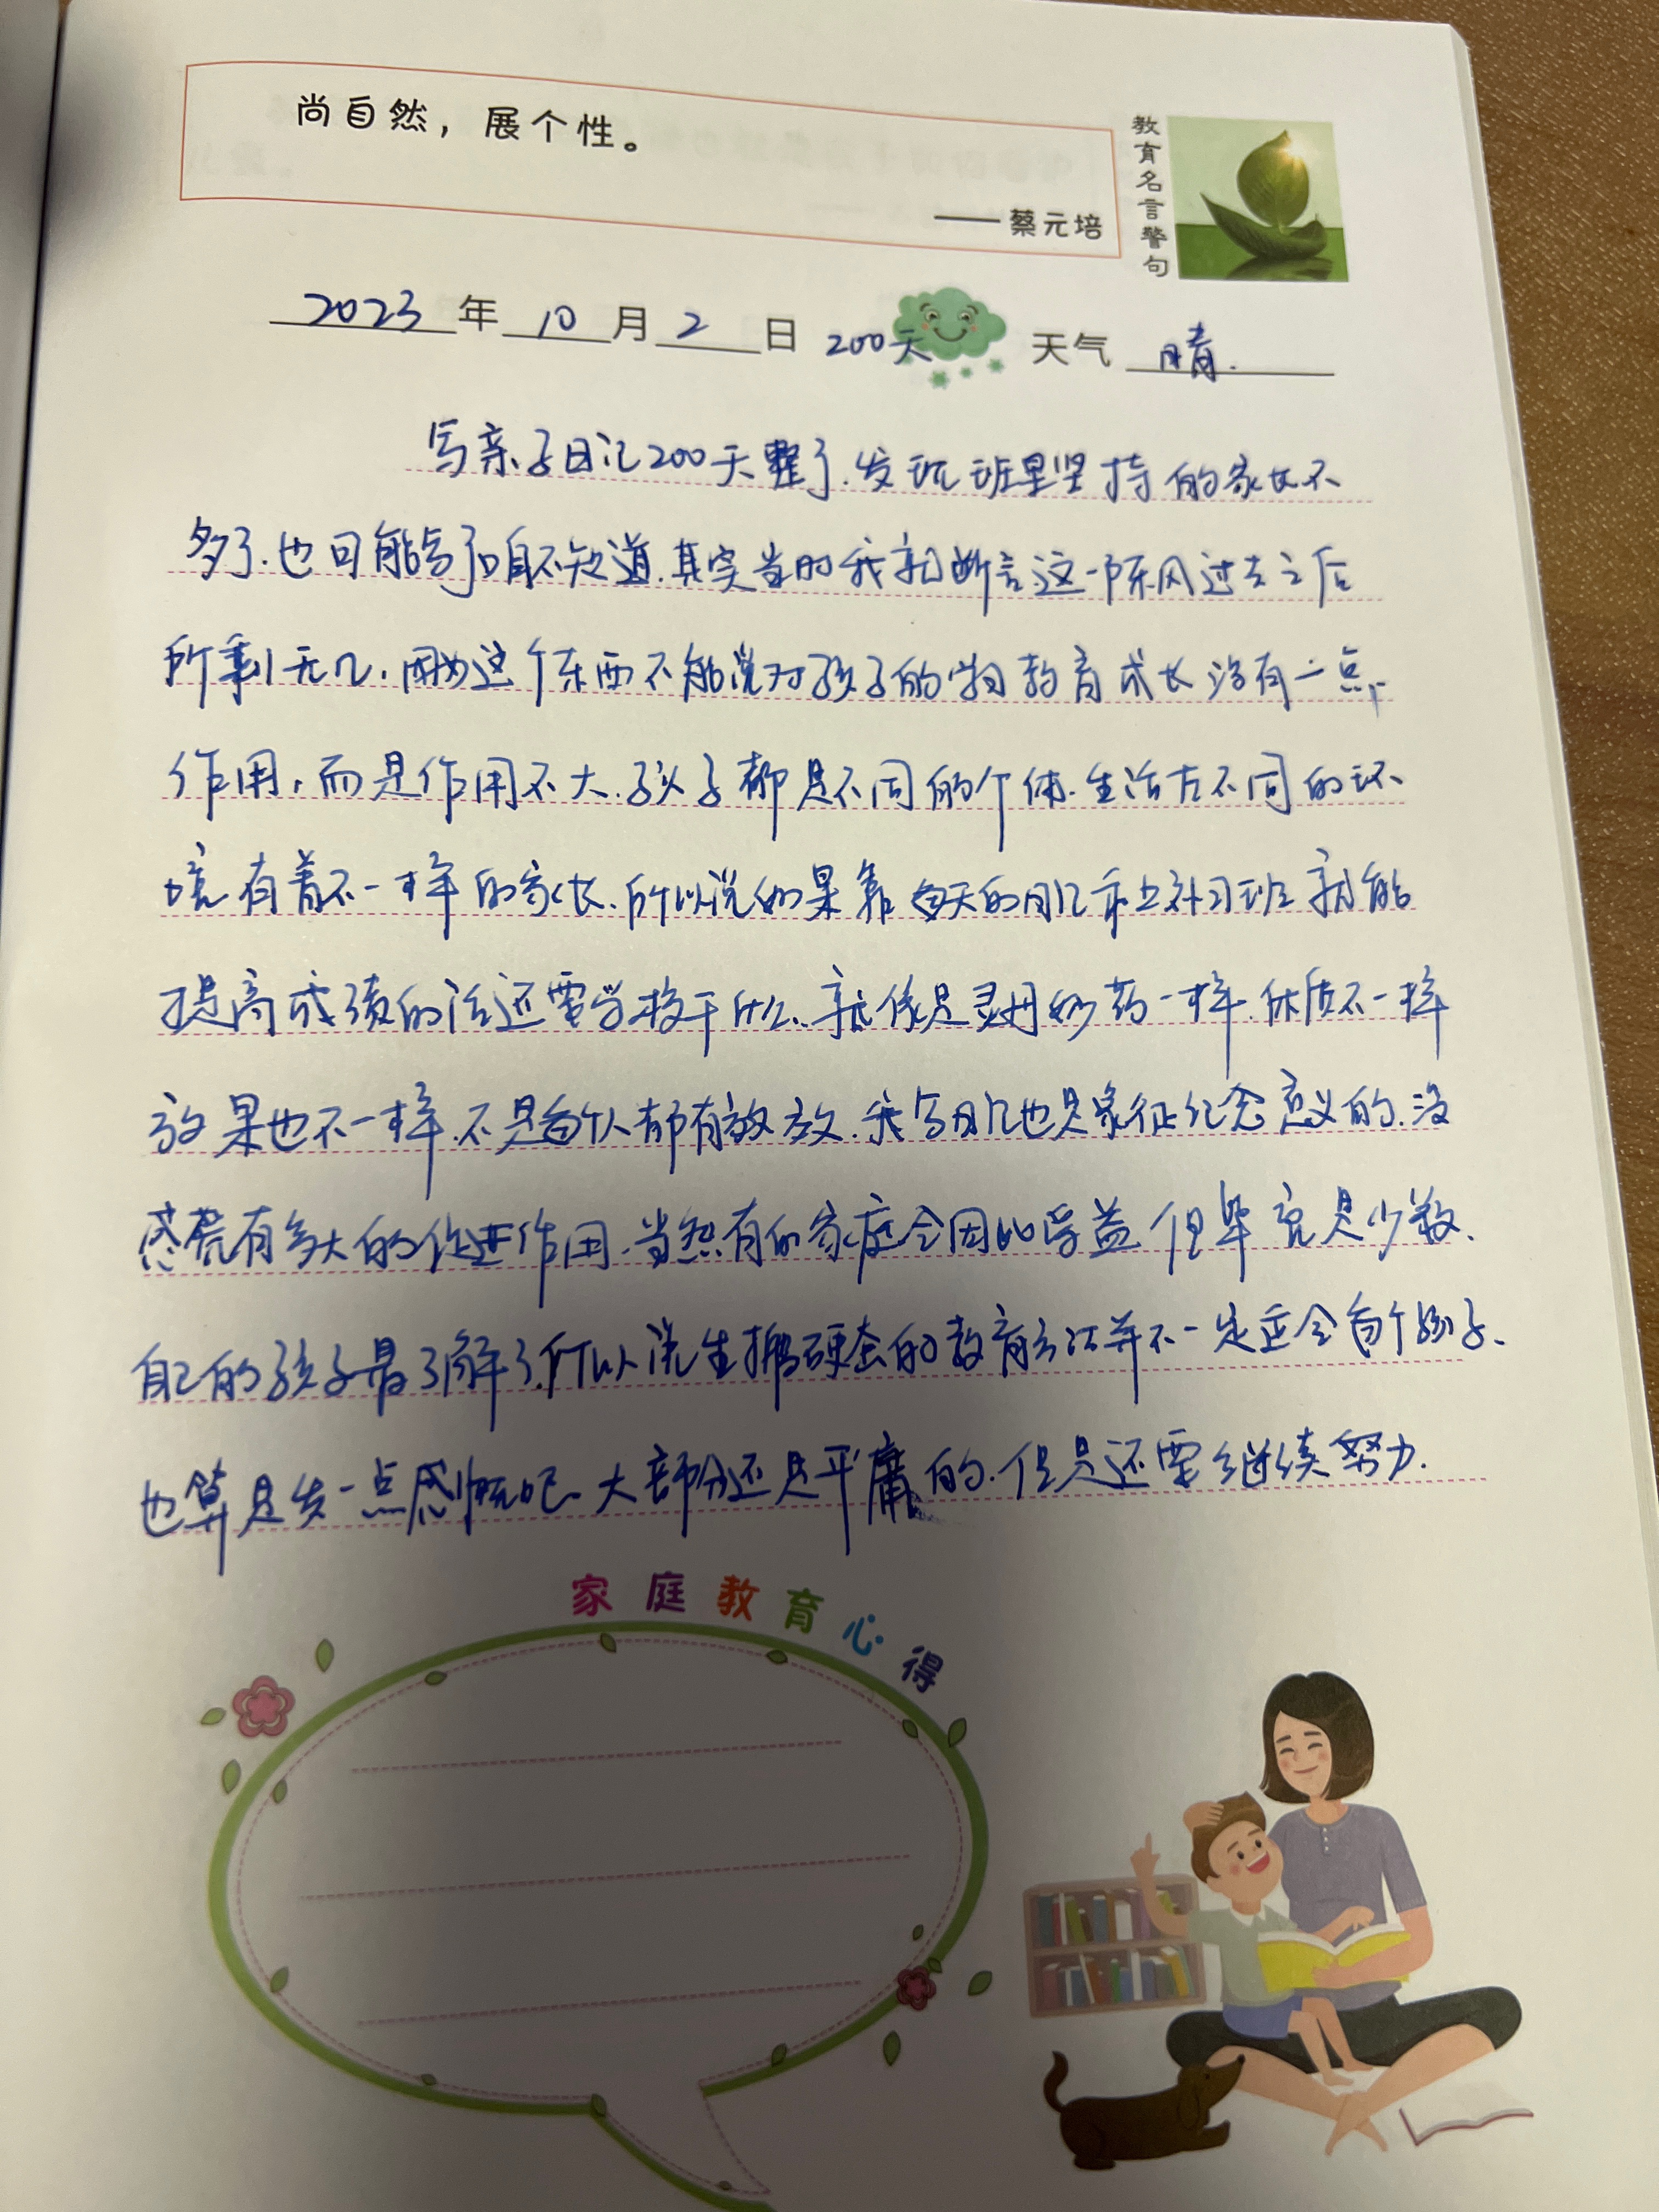 尚自然，展个性。
——蔡元培
教育名言警句
2023年10月2日 200天 天气 晴.
写亲子日记200天整了.发现班里坚持的家长不
多了.也可能写了咱不知道.其实当时我就断言这一阵风过去之后
所剩无几.因为这个东西不能说对孩子的教育成长没有一点
作用,而是作用不大.孩子都是不同的个体.生活在不同的环
境有着不一样的家长.所以说如果靠每天的日记和上补习班就能
提高成绩的话还需学校干什么.就像是灵丹妙药一样.体质不一样
效果也不一样.不是每个人都有效.我写日记也是象征纪念意义的.没
感觉有多大的促进作用.当然有的家庭会因此受益但毕竟是少数.
自己的孩子最了解了.所以说生搬硬套的教育方法并不一定适合每个孩子.
也算是发一点感慨吧.大部分还是平庸的.但是还需继续努力.
家庭教育心得